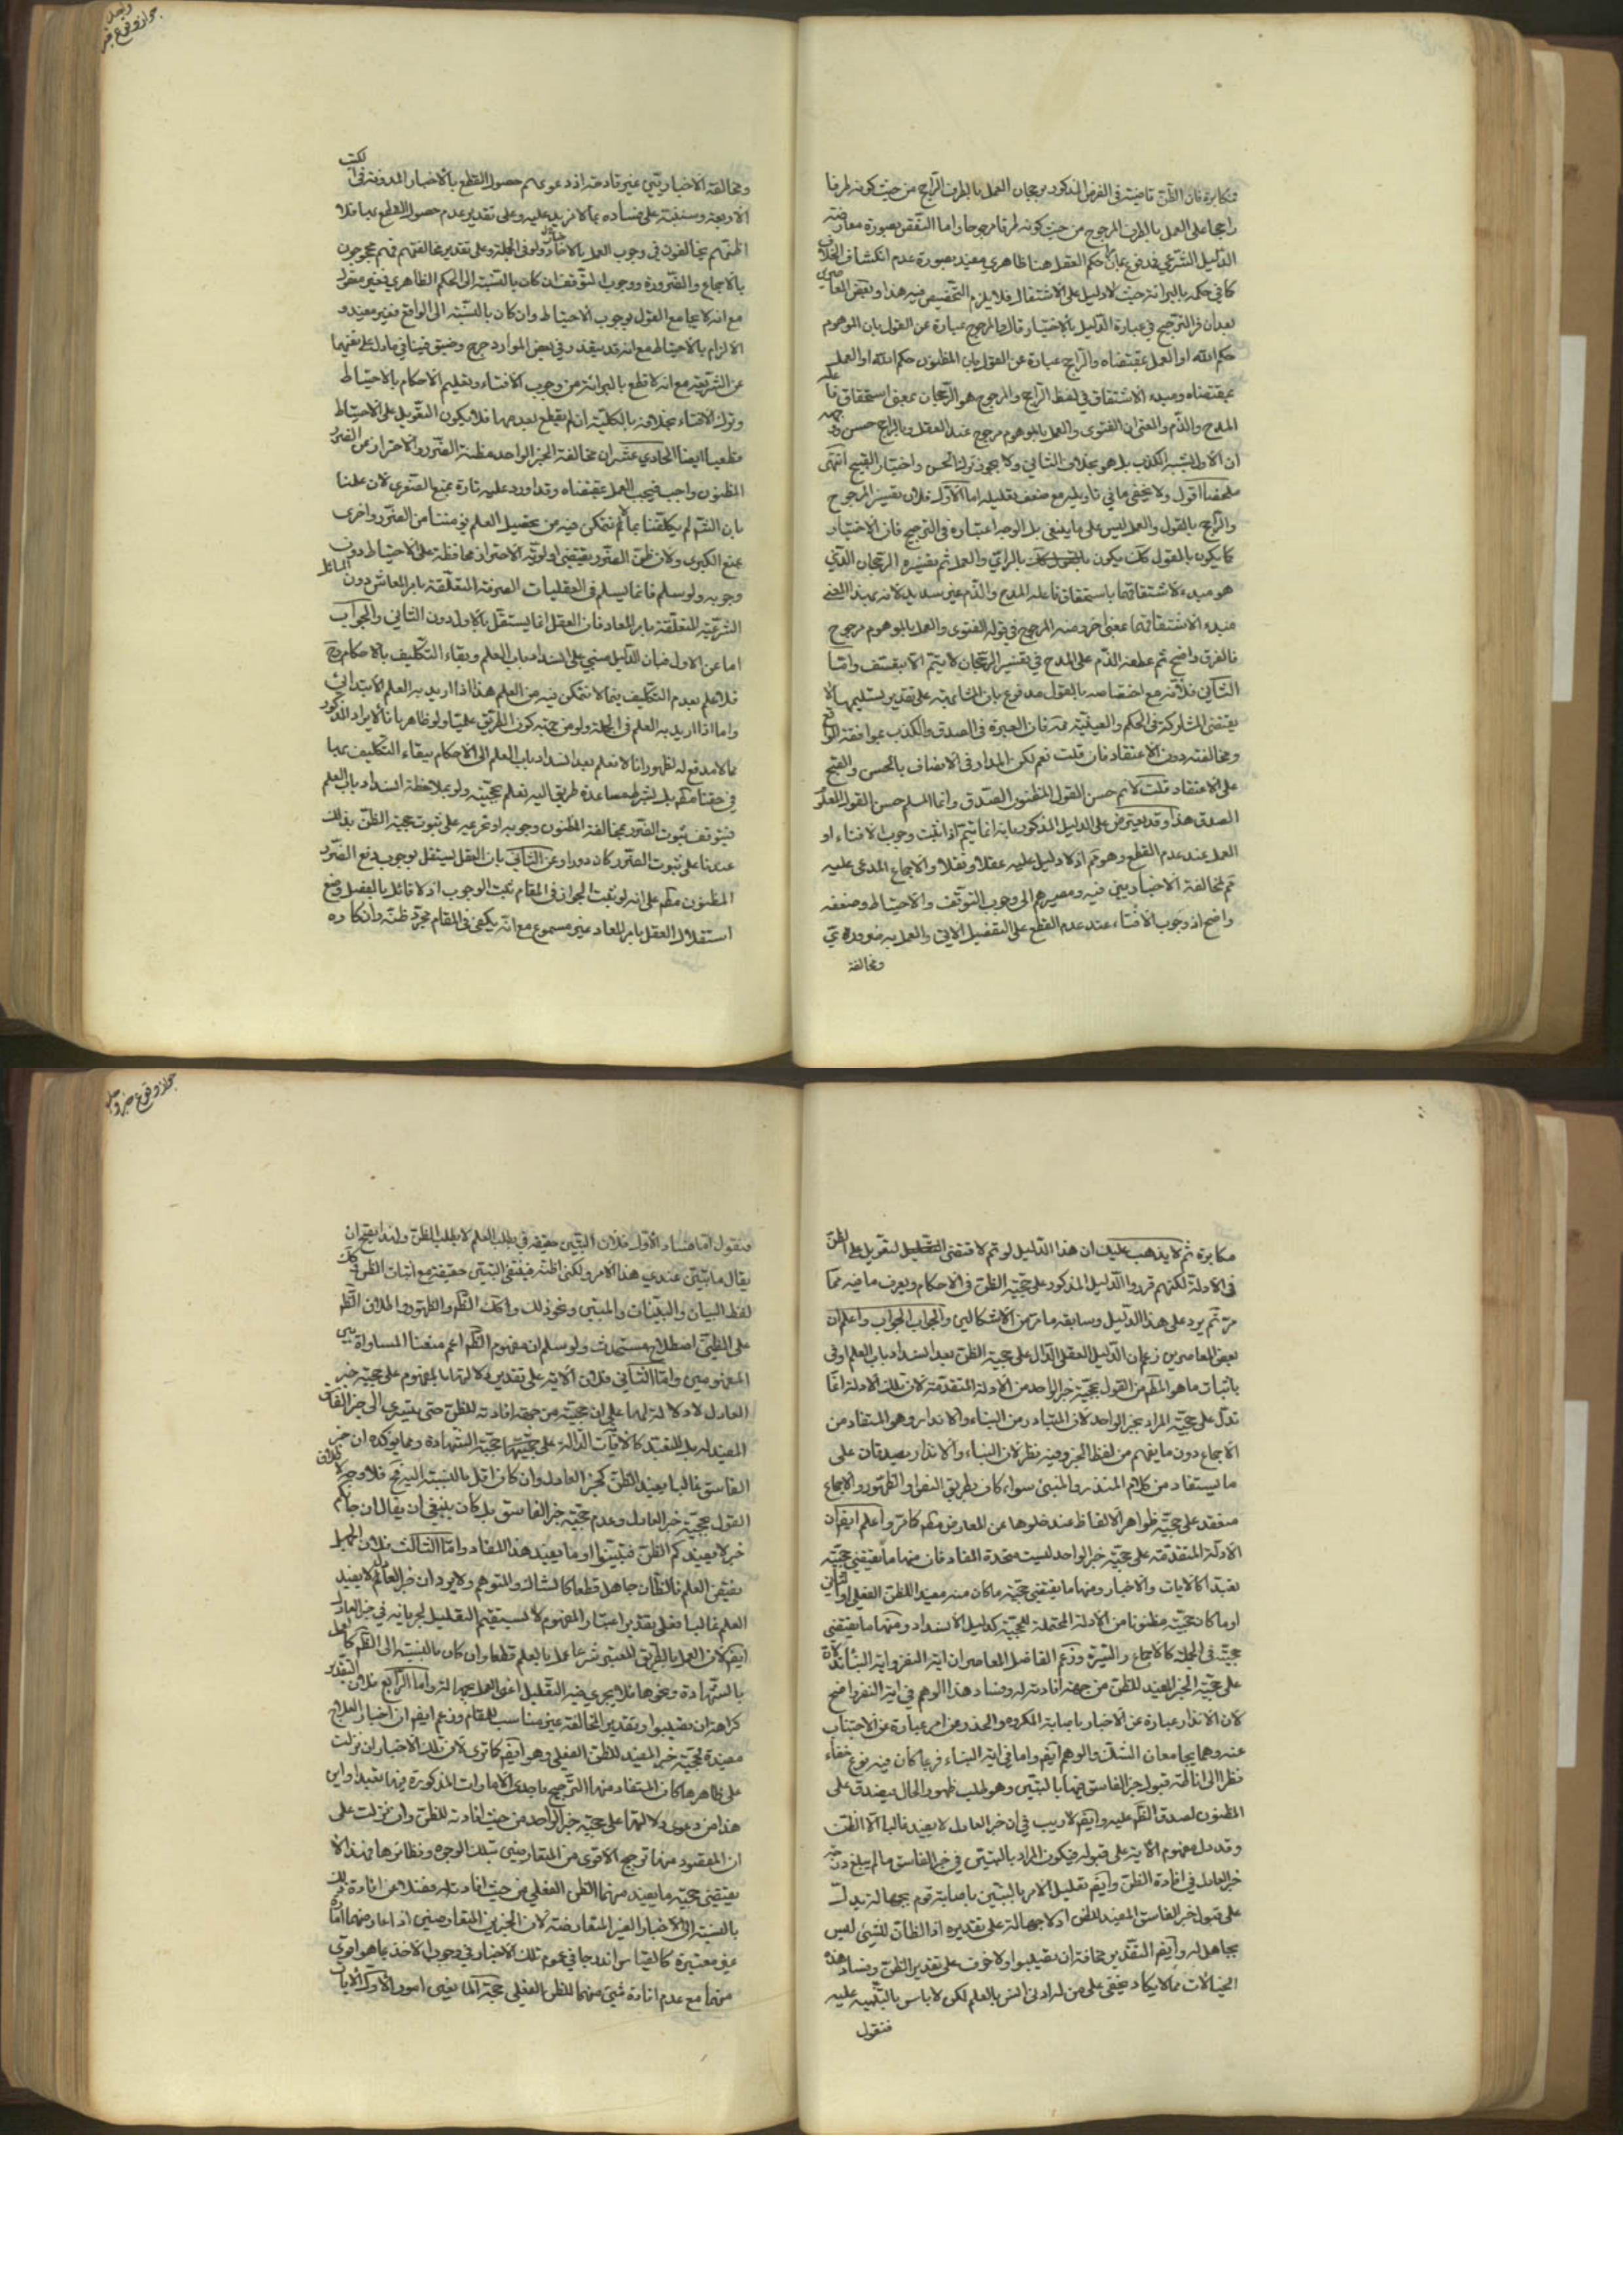 فمكابرة فان الظن قاضية فى الفرض المذكور برجحان العمل بالطرف الراجح من حيث كونه طرفا
راجحا على العمل بالطرف المرجوح من حيث كونه طرفا مرجوحا واما النقض بصورة معارضة
الدليل الشرعي فمدفوع بان حكم العقل هنا ظاهري مفيد بصورة عدم انكشاف الخلاف
كما فى حكمه بالبرائة حيث لا دليل على الاشتغال فلا يلزم التخصيص فيه هذا وبعض المعاصرين
بعد ان فسر الترجيح فى عبارة الدليل بالاختيار قال والمرجوح عبارة عن القول بان الموهوم
حكم الله او العمل بمقتضاه والراجح عبارة عن القول بان المظنون حكم الله او العمل
بمقتضاه ومبدء الاشتقاق فى لفظ الراجح والمرجوح هو الرجحان بمعنى استحقاق فاعله
المدح والذم والمعنى ان الفتوى والعمل بالموهوم مرجوح عند العقل وبالراجح حسن
ان الاول يشبه الكذب بل هو بخلاف الثاني ولا يجوز ترك الحسن واختيار القبيح انتهى
ملخصا اقول ولا يخفى ما فى تاويله مع ضعف تعليله اما الاول فلان تفسير المرجوح
والراجح بالقول والعمل ليس على ما ينبغى بل الوجه اعتباره فى الترجيح فان الاختيار
كما يكون بالقول كك يكون بالراي والعمل ثم تفسيره الرجحان الذي
هو مبدء لاشتقاقهما باستحقاق فاعله المدح والذم غير سديد لانه بهذا المعنى
مبدء الاشتقاقهما بمعنى اخر دون المرجوح فى قوله الفتوى والعمل بالموهوم مرجوح
فالفرق واضح ثم عطفه الذم على المدح فى تفسير الرجحان لا يتم الا بتعسف واما
الثاني فلانه مع اختصاصه بالقول مدفوع بان المشابهة على تقدير تسليمها لا
يقتضى المشاركة فى الحكم والعينية ممنوعة فان العبرة فى الصدق والكذب بموافقة الواقع
ومخالفته دون الاعتقاد فان قلت نعم لكن المدار فى الاتصاف بالحسن والقبح
على الاعتقاد قلت لا نم حسن القول المظنون الصدق وانما المسلم حسن القول المعلوم
الصدق هذا وقد يعترض على الدليل المذكور بانه انما يتم اذا ثبت وجوب الافتاء او
العمل عند عدم القطع وهو مم اذ لا دليل عليه عقلا ونقلا والاجماع المدعى عليه
مم لمخالفة الاخباريين فيه ومصيرهم الى وجوب التوقف والاحتياط وضعفه
واضح اذ وجوب الافتاء عند عدم القطع على التفصيل الاتي والعمل به ضروري
ومخالفة
ومخالفة الاخباريين غير قادحة اذ دعويهم حصول القطع بالاخبار المدونة فى الكتب
الاربعة وسننبه على فساده بما لا مزيد عليه وعلى تقدير عدم حصول القطع بها فلا
اظنهم يخالفون فى وجوب العمل بالاخبار ولو فى الجملة وعلى تقدير مخالفتهم فهم محجوجون
بالاجماع والضرورة ووجوب التوقف ان كان بالنسبة الى الحكم الظاهري فغير معقول
مع انه لا يجامع القول بوجوب الاحتياط وان كان بالنسبة الى الواقع فغير مفيد و
الالزام بالاحتياط مع انه قد يتعذر وفى بعض الموارد حرج وضيق فينافى ما دل على نفيهما
عن الشريعة مع انه لا قطع بالبرائة من وجوب الافتاء وتعليم الاحكام بالاحتياط
وترك الافتاء بخلافه بالكلية ان لم يقطع بعدمها فلا يكون التعويل على الاحتياط
قطعيا ايضا الحادي عشر ان مخالفة الخبر الواحد مظنة الضرر والاحتراز من الضرر
المظنون واجب فيجب العمل بمقتضاه وقد اورد عليه تارة بمنع الصغرى لان علمنا
بان الش لم يكلفنا بما لم نتمكن فيه من تحصيل العلم يؤمننا من الضرر واخرى
بمنع الكبرى ولان ظن الضرر يقتضى اولوية الاحتراز محافظة على الاحتياط دون
وجوبه ولو سلم فانما يسلم فى العقليات الصرفة المتعلقة بامر المعاش دون المسائل
الشرعية المتعلقة بامر المعاد فان العقل انما يستقل بالاول دون الثاني والجواب
اما عن الاول فبان الدليل مبني على انسداد باب العلم وبقاء التكليف بالاحكام وح
فلا علم بعدم التكليف بما لا نتمكن فيه من العلم هذا اذا اريد به العلم الابتدائي
واما اذا اريد به العلم فى الجملة ولو من جهة كون الطريق علميا ولو ظاهرا فالايراد المذكور
مما لا مدفع له لظهور انا لا نعلم بعد انسداد باب العلم الى الاحكام ببقاء التكليف بها
فى حقنا مط بل بشرط مساعدة طريق اليه نعلم بحجيته ولو بملاحظة انسداد باب العلم
فيتوقف ثبوت الضرر بمخالفة المظنون وجوبه او تحريمه على ثبوت حجية الظن بذلك
عندنا على ثبوت الضرر كان دورا وعن الثاني بان العقل يستقل بوجوب دفع الضرر
المظنون مط على انه لو ثبت الجواز فى المقام ثبت الوجوب اذ لا قائل بالفصل ومنع
استقلال العقل بامر المعاد غير مسموع مع انه يكفى فى المقام مجرد ظنه وانكاره
مكابرة ثم لا يذهب عليك ان هذا الدليل لو تم لاقتضى التعويل على الظن
فى الادلة لكنهم قرروا الدليل المذكور على حجية الظن فى الاحكام ويعرف ما فيه مما
مر ثم يرد على هذا الدليل وسابقه ما مر من الاشكالين والجواب الجواب واعلم ان
بعض المعاصرين زعم ان الدليل العقلى الدال على حجية الظن بعد انسداد باب العلم اوفى
باثبات ما هو المهم من القول بحجية خبر الواحد من الادلة المتقدمة لان تلك الادلة انما
تدل على حجية المراد بخبر الواحد لان المتبادر من النباء والانذار وهو المستفاد من
الاجماع دون ما يفهم من لفظ الخبر وفيه نظر لان النباء والانذار يصدقان على
ما يستفاد من كلام المنذر والمنبئ سواء كان بطريق النص او الظهور والاجماع
منعقد على حجية ظواهر الالفاظ عند خلوها عن المعارض مط كما مر واعلم ايضا ان
الادلة المتقدمة على حجية خبر الواحد ليست متحدة المفاد فان منها ما يقتضى حجيته
تعبدا كالايات والاخبار ومنها ما يقتضى حجية ما كان منه مفيدا للظن الفعلى او الشاني
او ما كان حجيته مظنونا من الادلة المحتملة للحجية كدليل الانسداد ومنها ما يقتضى
حجيته فى الجملة كالاجماع والسيرة وزعم الفاضل المعاصر ان اية النفر واية النباء تدلان
على حجية الخبر المفيد للظن من جهة افادته له وفساد هذا الوهم فى اية النفر واضح
لان الانذار عبارة عن الاخبار باصابة المكروه والحذر من امر عبارة عن الاجتناب
عنه وهما يجامعان الشك والوهم ايضا واما فى اية النباء فربما كان فيه نوع خفاء
نظرا الى اناطة قبول خبر الفاسق فيها بالتبين وهو طلب ظهور الحال فيصدق على
المظنون لصدق الظهور عليه وايضا لا ريب فى ان خبر العادل لا يفيد غالبا الا الظن
وقد دل مفهوم الاية على قبوله فيكون المراد بالتبين فى خبر الفاسق ما لم يبلغ درجة
خبر العادل فى افادة الظن وايضا تعليل الامر بالتبين باصابة قوم بجهالة يدل
على قبول خبر الفاسق المفيد للظن اذ لا جهالة على تقديره اذ الظان للشيئ ليس
بجاهل له وايضا التقدير مخافة ان تصيبوا ولا خوف على تقدير الظن وفساد هذه
الخيالات مما لا يكاد يخفى على من له ادنى انس بالعلم لكن لا باس بالتنبيه عليه
فنقول
فنقول اما فساد الاول فلان التبين حقيقة فى طلب العلم لا طلب الظن ولهذا يصح ان
يقال ما تبين عندي هذا الامر ولكنى اظنه فينتفى التبين حقيقة مع اثبات الظن وكك
لفظ البيان والبينات والمبين ونحو ذلك وكك الظهور واطلاق الظهور
على الظني اصطلاح مستحدث ولو سلم ان مفهوم الظهور اعم منعنا المساواة بين
المفهومين واما الثاني فلان الاية على تقدير دلالتها بالمفهوم على حجية خبر
العادل لا دلالة لها على ان حجيته من جهة افادته للظن حتى يتسرى الى خبر الفاسق
المفيد له بل للتعبد كالايات الدالة على حجية الشهادة ومما يؤكده ان خبر
الفاسق غالبا يفيد الظن كخبر العادل وان كان اقل بالنسبة اليه فلا وجه لاطلاق
القول بحجية خبر العادل وعدم حجية خبر الفاسق بل كان ينبغى ان يقال ان جائكم
خبر لا يفيدكم الظن فتبينوا او ما يفيد هذا المفاد واما الثالث فلان الجهل
نقيض العلم فالظان جاهل قطعا كالشاك والمتوهم ولا يرد ان خبر العادل لا يفيد
العلم غالبا فعلى تقدير اعتبار المفهوم لا يستقيم التعليل لجريانه فى خبر العادل
ايضا لان العمل بالطريق المعتبر شرعا عمل بالعلم قطعا وان كان بالنسبة الى الظهور كالعمل
بالشهادة ونحوها فلا يجري فيه التعليل اعنى العمل بجهالة واما الرابع فلان التقدير
كراهة ان تصيبوا وتقدير المخافة غير مناسب للمقام وزعم ايضا ان اخبار العلاج
مفيدة لحجية خبر المفيد للظن الفعلى وهو ايضا كما ترى لان تلك الاخبار ان نزلت
على ظاهرها كان المستفاد منها الترجيح باحدى الامارات المذكورة فيها تعبدا واين
هذا من دعوى دلالتها على حجية خبر الواحد من حيث افادته للظن وان نزلت على
ان المقصود منها ترجيح الاقوى من المتعارضين بتلك الوجوه ونظائرها فهذا لا
يقتضى حجية ما يفيد منهما الظن الفعلى من حيث افادته له فضلا عن افادة ذلك
بالنسبة الى الاخبار الغير المتعارضة لان الخبرين المتعارضين اذا عارضهما امارة
غير معتبرة كالقياس اندرجا فى عموم تلك الاخبار فى وجوب الاخذ بما هو اقوى
منهما مع عدم افادة شيئ منهما للظن الفعلى حجة المانعين امور الاول الايات
جواز وقوع خبر واحد
جواز وقوع خبر واحد